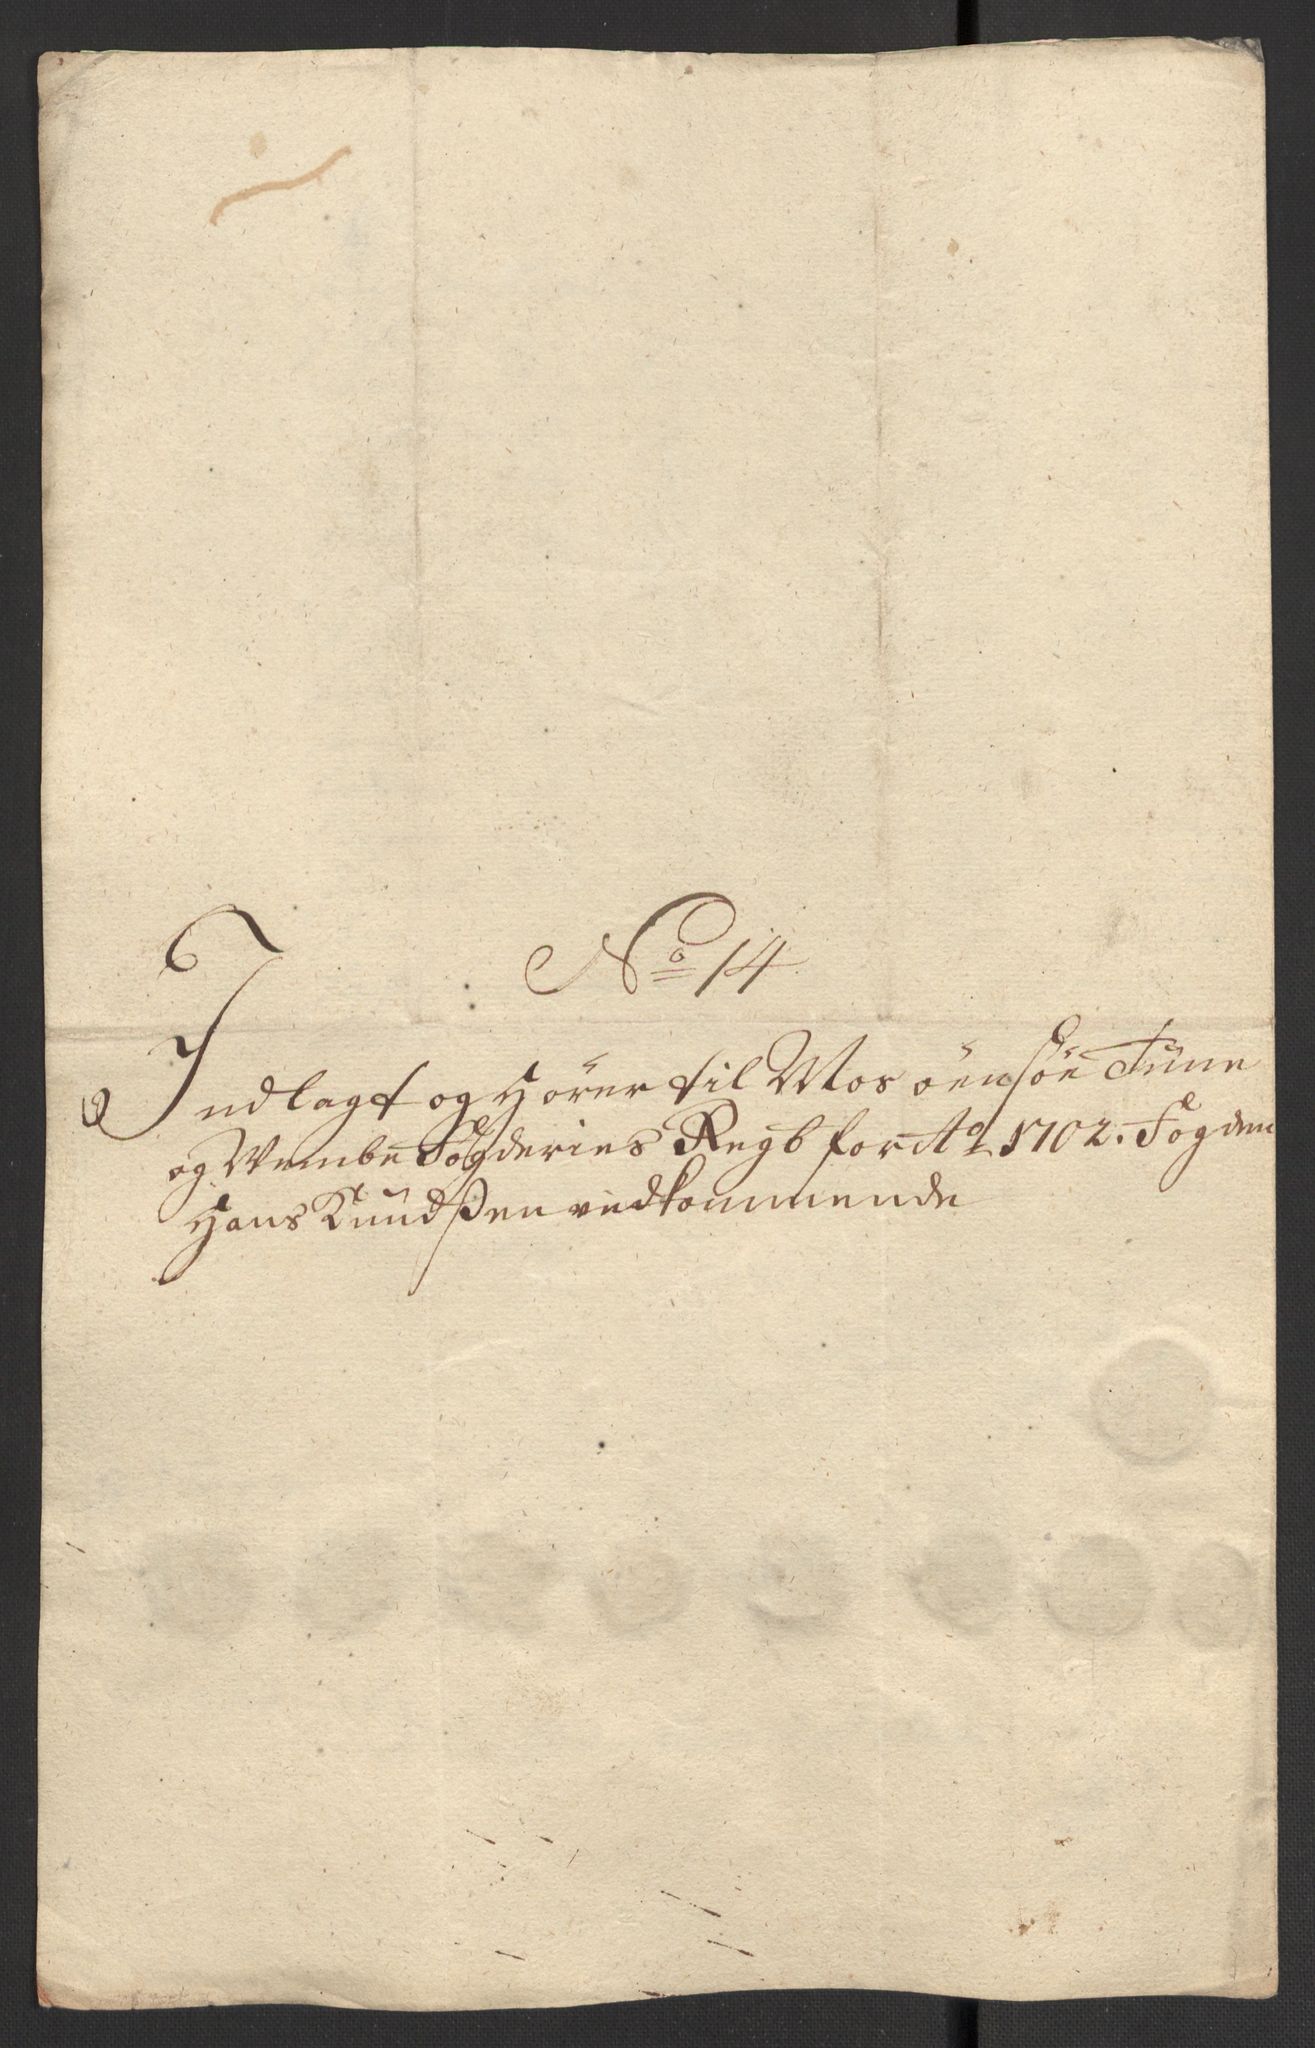 No 14
Indlagt og Hörer til Mos öensöe Tune
og Wembe Fogderies Regb for Ao 1702. Fogden
Hans Knudßen vedkommende